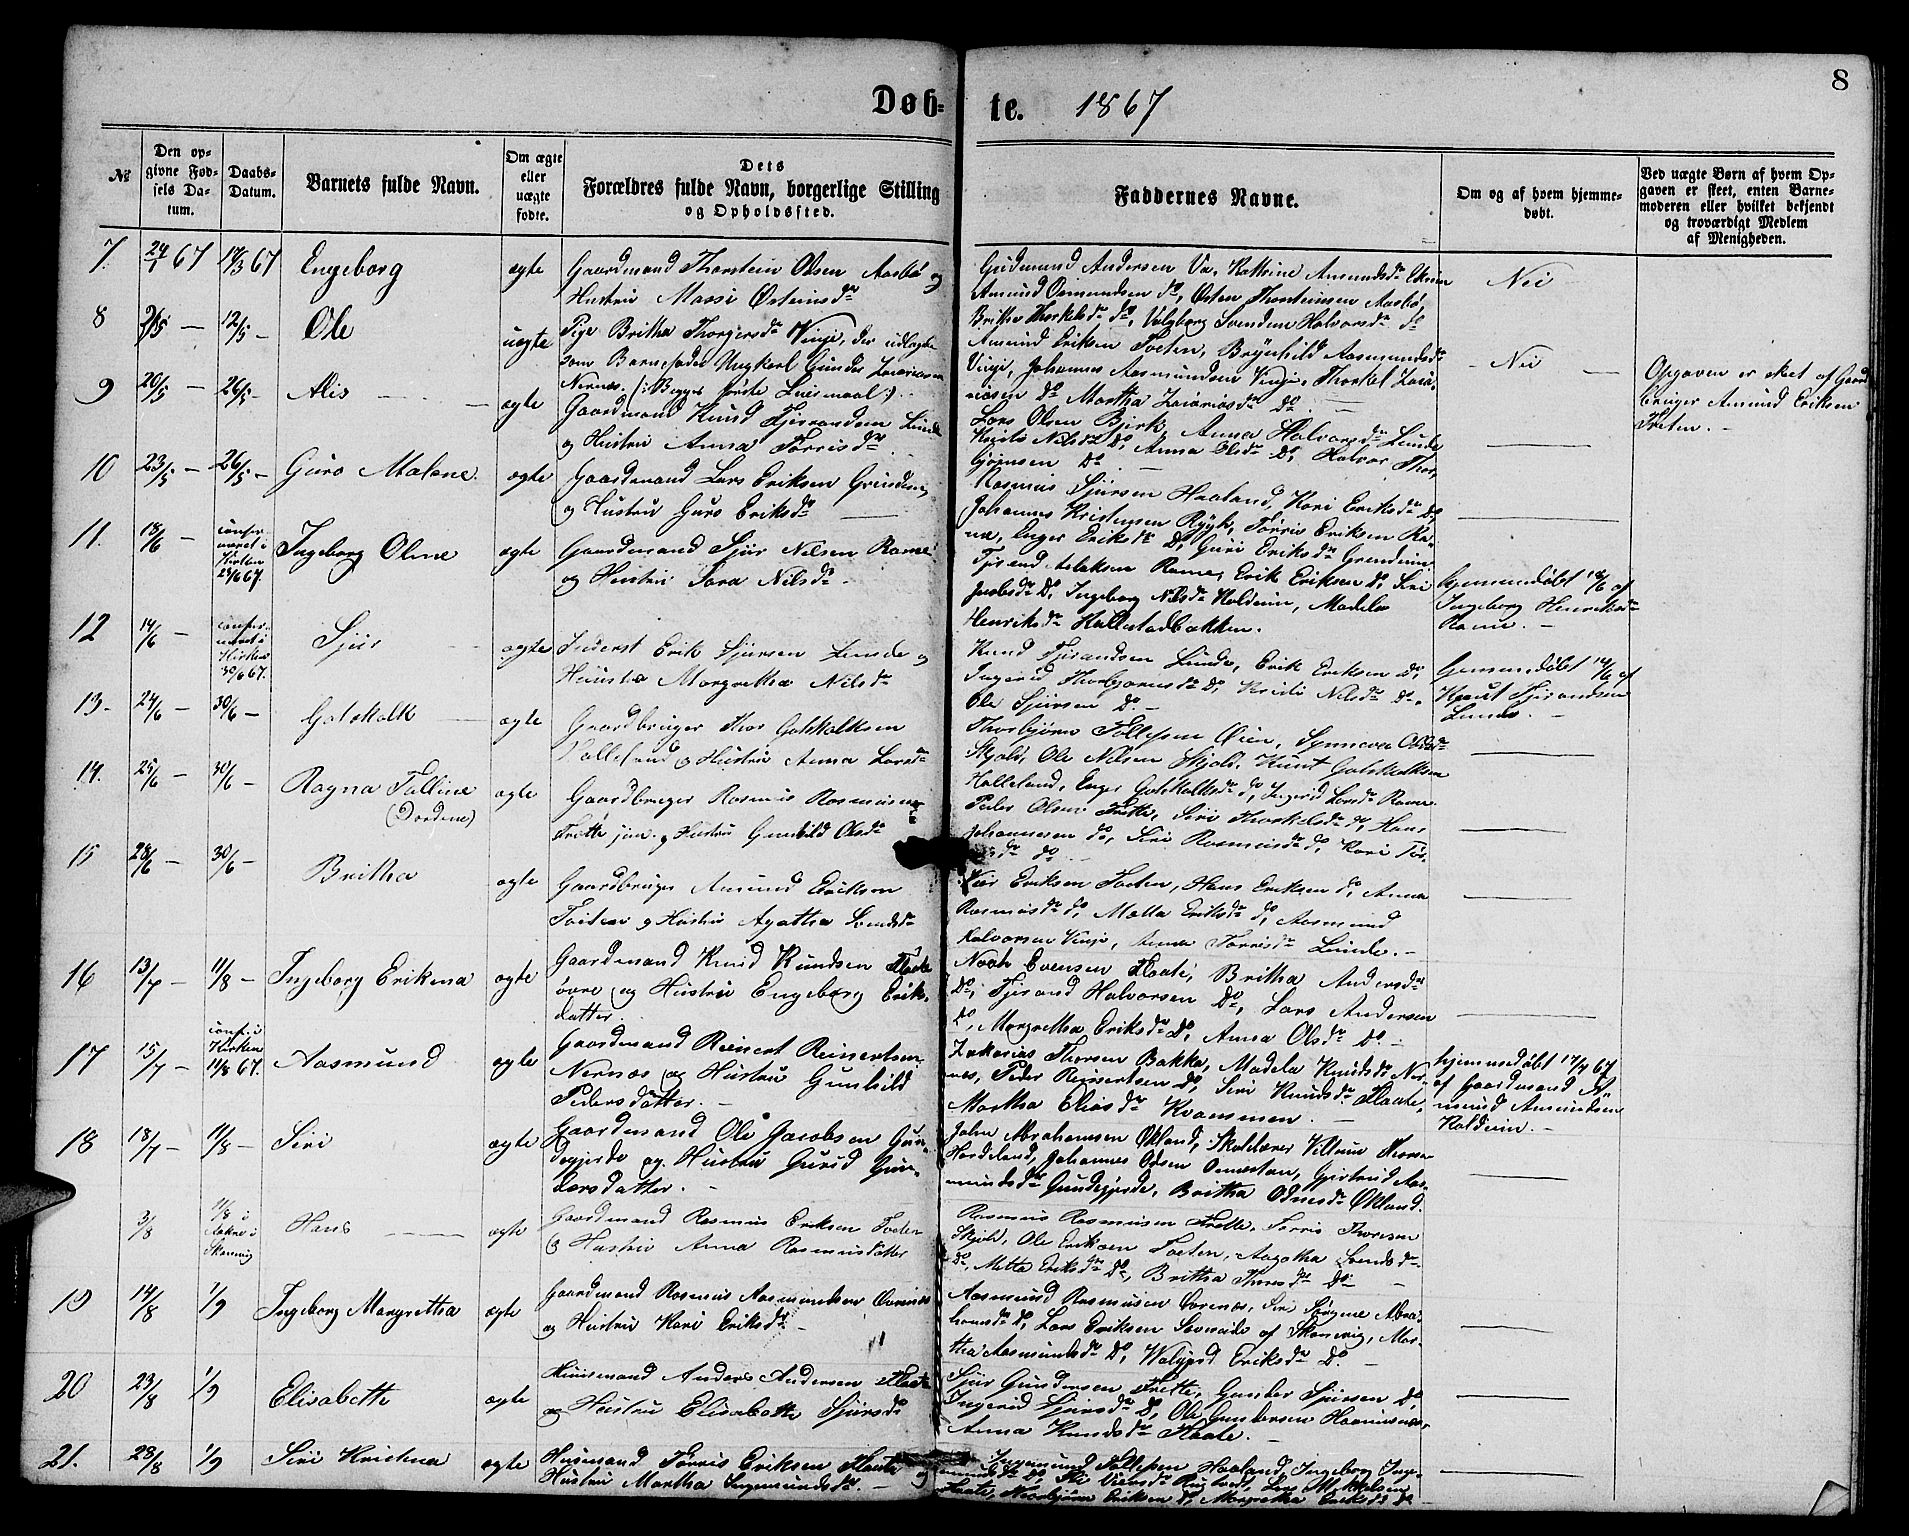 8
Døb- te. 1867
№
Den op-
givne Fød-
sels Da-
tum.
Daabs-
Datum.
Barnets fulde Navn.
Om ægte
eller
uægte
fødte.
Dets
Forældres fulde Navn, borgerlige Stilling
og Opholdssted.
Faddernes Navne.
Om og af hvem hjemme-
døbt.
Ved uægte Børn af hvem Op-
gaven er skeet, enten Barne-
moderen eller hvilket bekjendt
og troværdigt Medlem
af Menigheden.
7. 24/1 67 17/3 67 Engeborg ægte
Gaardmand Thorstein Olsen Aasbø og
Hustru Massi Østeinsdr
Gudmund Andersen Va, Kattrine Amundsdr
Amund Osmundsen do, Østen Thorsteinsen Aasbø,
Britha Thorkelsdr do, Valgborg Svendsen Halvorsdr do
Nei
8 — 12/5 — Ole uægte
Pige Britha Thorgersdr Vinje, der udlagde
som Barnefader Ungkarl Gunder Zakariasen
Nernes. (: Begges første Leiermaal :)
Amund Eriksen Toeten, Brynhild Aasmundsdr
Vinje, Johannes Aasmundsen Vinje, Thorkel Zakari-
asen do Martha Zakariasdr Do. —
Nei
Opgaven er skeet af Gaard
bruger Amund Eriksen
Toeten. —
9 20/5 — 26/5 — Alis ægte
Gaardmand Knud Tjerandsen Lunde
og Hustru Anna Torrisdr
Lars Olsen Bjerk, Anna Halvorsdr Lunde
Kristi Nilsdr Do, Anna Olsdr Do, Halvor Thor-
bjørnsen do
10 23/5 — 26/5 — Guro Malene. ægte
Gaardmand Lars Eriksen Grindem,
og Hustru Guro Eriksdr
Rasmus Sjursen Haaland, Kari Eriksdr Do,
Johannes Kristensen Rygh, Torris Eriksen Ra-
me, Enger Eriksdr Do, Guri Eriksdr Grindem.
11. 18/6 — confir-
meret i
Kirken
23/6 67. Ingeborg Oline ægte
Gaardmand Sjur Nilsen Rame
og Hustru Sara Nilsdr
Tjerand Aslaksen Rame, Erik Eriksen do, Siri
Jacobsdr Do, Ingeborg Nilsdr Haldeim, Madele
Henriksdr Hallestadbakken.
hjemmedøbt 18/6 af
Ingeborg Henriksdr
Rame. —
12 14/6 — confir-
meret i
Kirken
30/6 67. Sjur ægte
Inderst Erik Sjursen Lunde og
Hustru Margretha Nilsdr
Knud Tjerandsen Lunde, Erik Eriksen Do,
Ingerid Thorbjørnsdr Do, Kristi Nilsdr Do.
Ole Sjursen Do. —
hjemmedøbt 14/6 af
Knut Tjerandsen
Lunde. —
13. 24/6 — 30/6 — Gotskalk ægte
Gaardbruger Thor Gotskalksen
Halleland og Hustru Anna Larsdr
Thorbjørn Tollefsen Øien, Synneva Olsdr
Skjold, Ole Nilsen Skjold, Knut Gotskalksen
Halleland, Enger Gotskalksdr do, Ingerid Larsdr Rame.
14. 25/6 — 30/6 — Ragna Talline
(Dordine) ægte
Gaardbruger Rasmus Rasmusen
Frette jun. og Hustru Gunhild Olsdr
Peder Olsen Frette, Siri Thorkelsdr do, Hans
Johannesen do, Siri Rasmusdr do, Kari Tor-
risdr do
15 28/6 — 30/6 — Britha ægte
Gaardbruger Amund Eriksen
Toeten og Hustru Agatha Svendsdr
Eriksen Toeten, Hans Eriksen do, Anna
Rasmusdr do, Metta Eriksdr do, Aasmund
Halvorsen Vinje, Anna Torrisdr Lunde. —
16 13/7 — 11/8 — Ingeborg Erikena ægte
Gaardmand Knud Knudsen Flaate
øvre og Hustru Engeborg Eriks-
datter.
Noah Evensen Flaate, Britha Andersdr
Do, Tjerand Halvorsen Do, Lars Andersen
Do, Margretha Eriksdr Do, Anna Olsdr Do. —
17 15/7 — conf. i
Kirken
11/8 67. Aasmund ægte
Gaardmand Reinert Reinertsen
Nernæs og Hustru Gunhild
Pedersdatter. —
Zakarias Thorsen Bakka, Madela Knudsdr Ner-
nes, Peder Reinertsen do, Siri Knudsdr Flaate,
Martha Eliasdr Kvammen. —
hjemmedøbt 17/7 67
af Gaardmand A-
mund Amundsen
Haldeim. —
18 18/7 — 11/8 — Siri ægte
Gaardmand Ole Jacobsen Gun-
degjerde og Hustru Gurid Gun-
dersdatter. —
John Abrahamsen Økland, Skolelærer Villum Thorsen
Hordeland, Johannes Odsen Osmestan, Gjertrud Aas-
mundsdr Gundegjerde, Britha Odnesdr Økland.
3/8 11/8 i
Etne i
Skonevig Hans ægte
Gaardmand Rasmus Eriksen Toeten
og Hustru Anna Rasmusdatter
Rasmus Rasmusen Frette, Torris Thorsen
Skjold, Ole Eriksen Toeten, Aagotha Svendsdr
Do, Metta Eriksdr Do, Britha Thoresdr Do.
19 14/8 1/9 Ingeborg Margretha ægte
Gaardmand Rasmus Aasmundsen Øvernes
og Hustru Kari Eriksdr —
Aasmund Rasmusen Øvernes, Siri Sørgine Abra-
hamsdr Do, Lars Eriksen Søreide af Skonevig, Mar-
tha Aasmundsdr Do, Eriksdr Do. —
20 23/8 1/9 Elisabette ægte
Huusmand Anders Andersen Flaate
og Hustru Elisabette Sjursdr
Sjur Gundersen Frette, Gunder Sjursen Do,
Ingerid Sjursdr Do, Ole Gundersen
Anna Knudsdr Flaate. —
21. 28/8 1/9 Siri Kristina ægte
Husmand Torris Eriksen Flaate og
Hustru Martha Ingemundsdr. —
Ingemund Tollefsen Haaland, Ingeborg Inge-
mundsdr do, Lars
Flaate, Thorbjørn Eriksen do, Margretha Eriksdr do